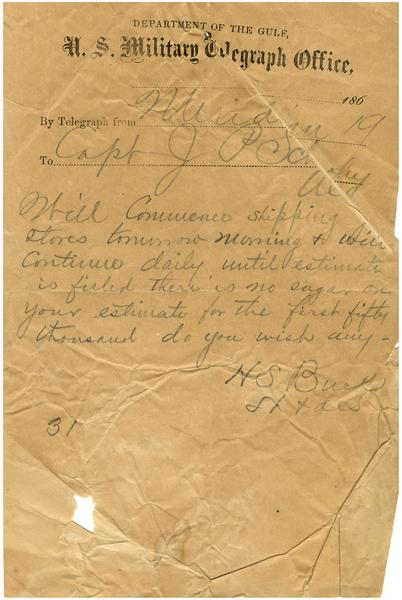 DEPARTMENT OF THE GULF,
U. S. Military Telegraph Office,
186
By Telegraph from Meridian 19
To Capt J P
Will Commence shipping
stores tomorrow morning & will
Continue daily until estimate
is filled there is no sugar on
your estimate for the first fifty
thousand do you wish any -
H S. Buck
31